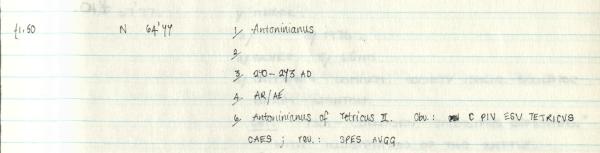 £1.50 N 64'77 1. Antoninianus
2.
3. 270-273 AD
4. AR/AE
6. Antoninianus of Tetricus II. Obv.: C PIV ESV TETRICVS
CAES ; rev.: SPES AVGG